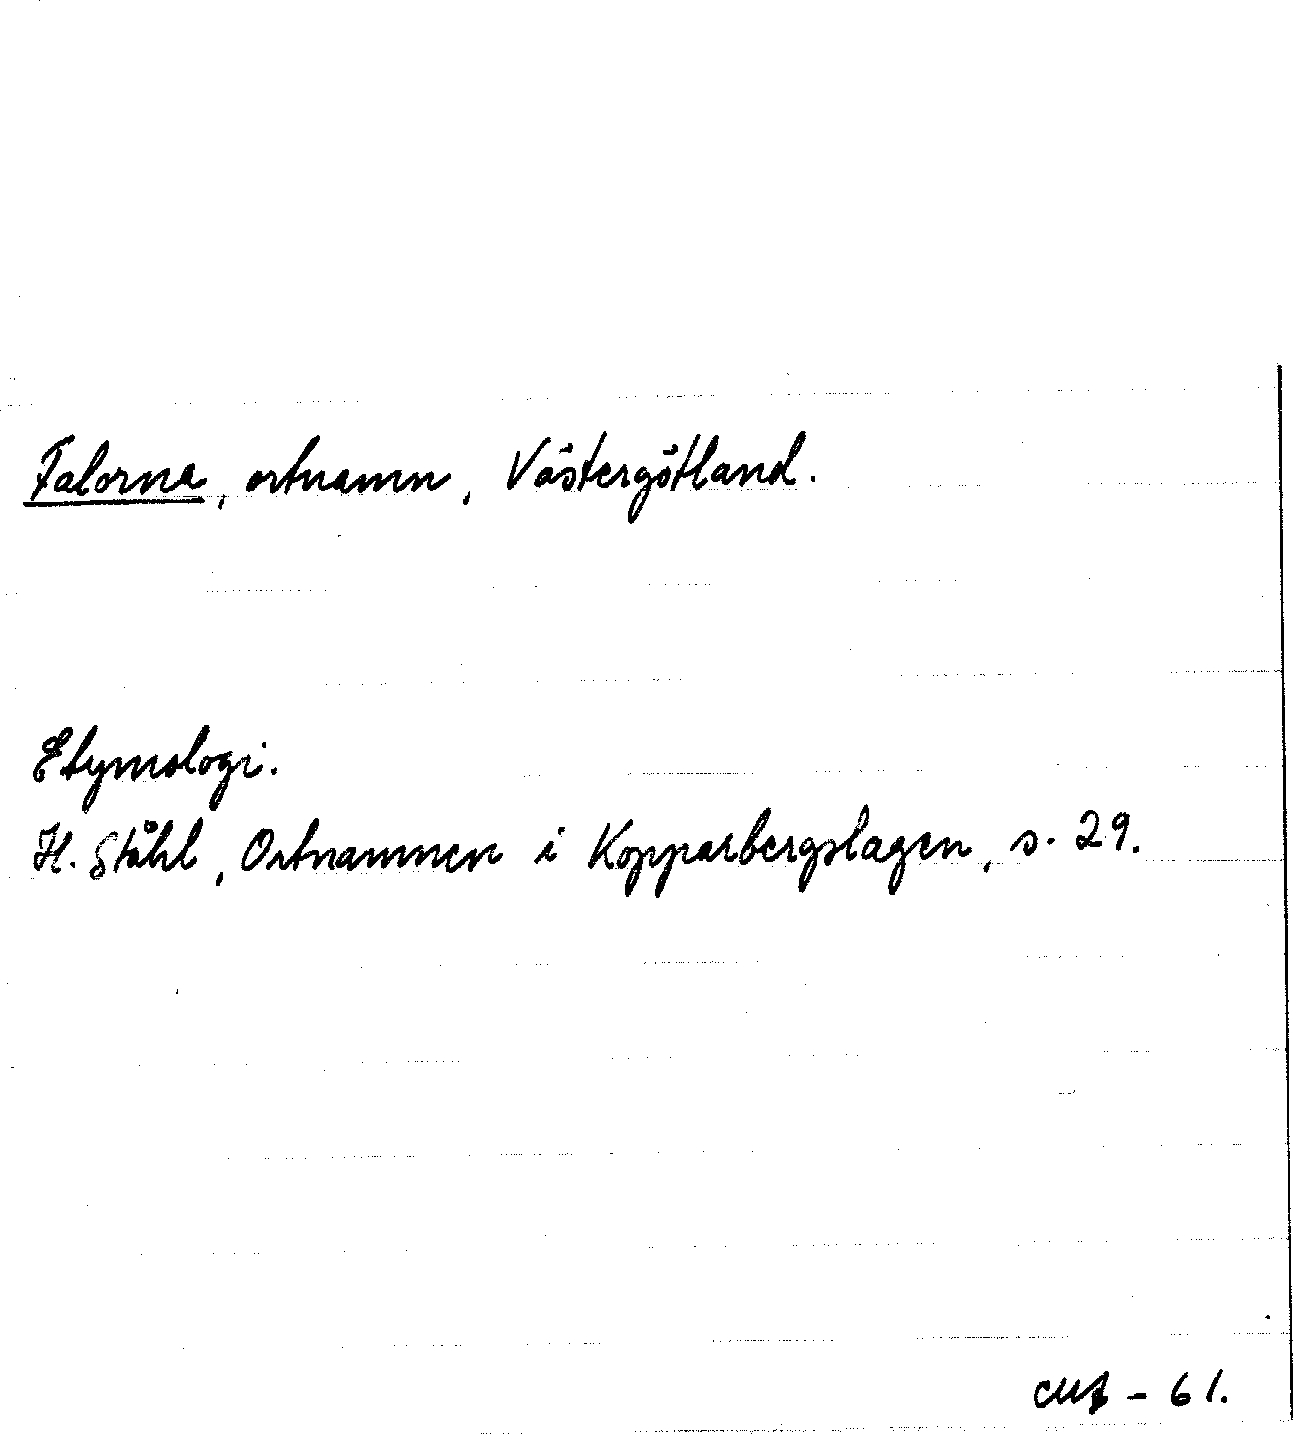 Falorna, ortnamn, Västergötland.
Etymologi.
H. Ståhl, Ortnamnen i Kopparbergslagen, s. 29.
- 61.